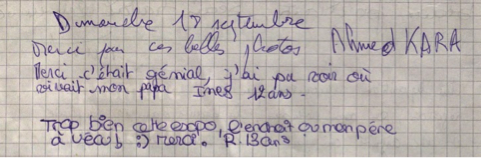 Dimanche 18 septembre
Merci pour ces belles photos Ahmed KARA
Merci c'était génial, j'ai pu voir où
vivait mon papa Ines 12 ans.
Trop bien cette expo, l'endroit ou mon père
à vécu :) Merci. R. 13 ans